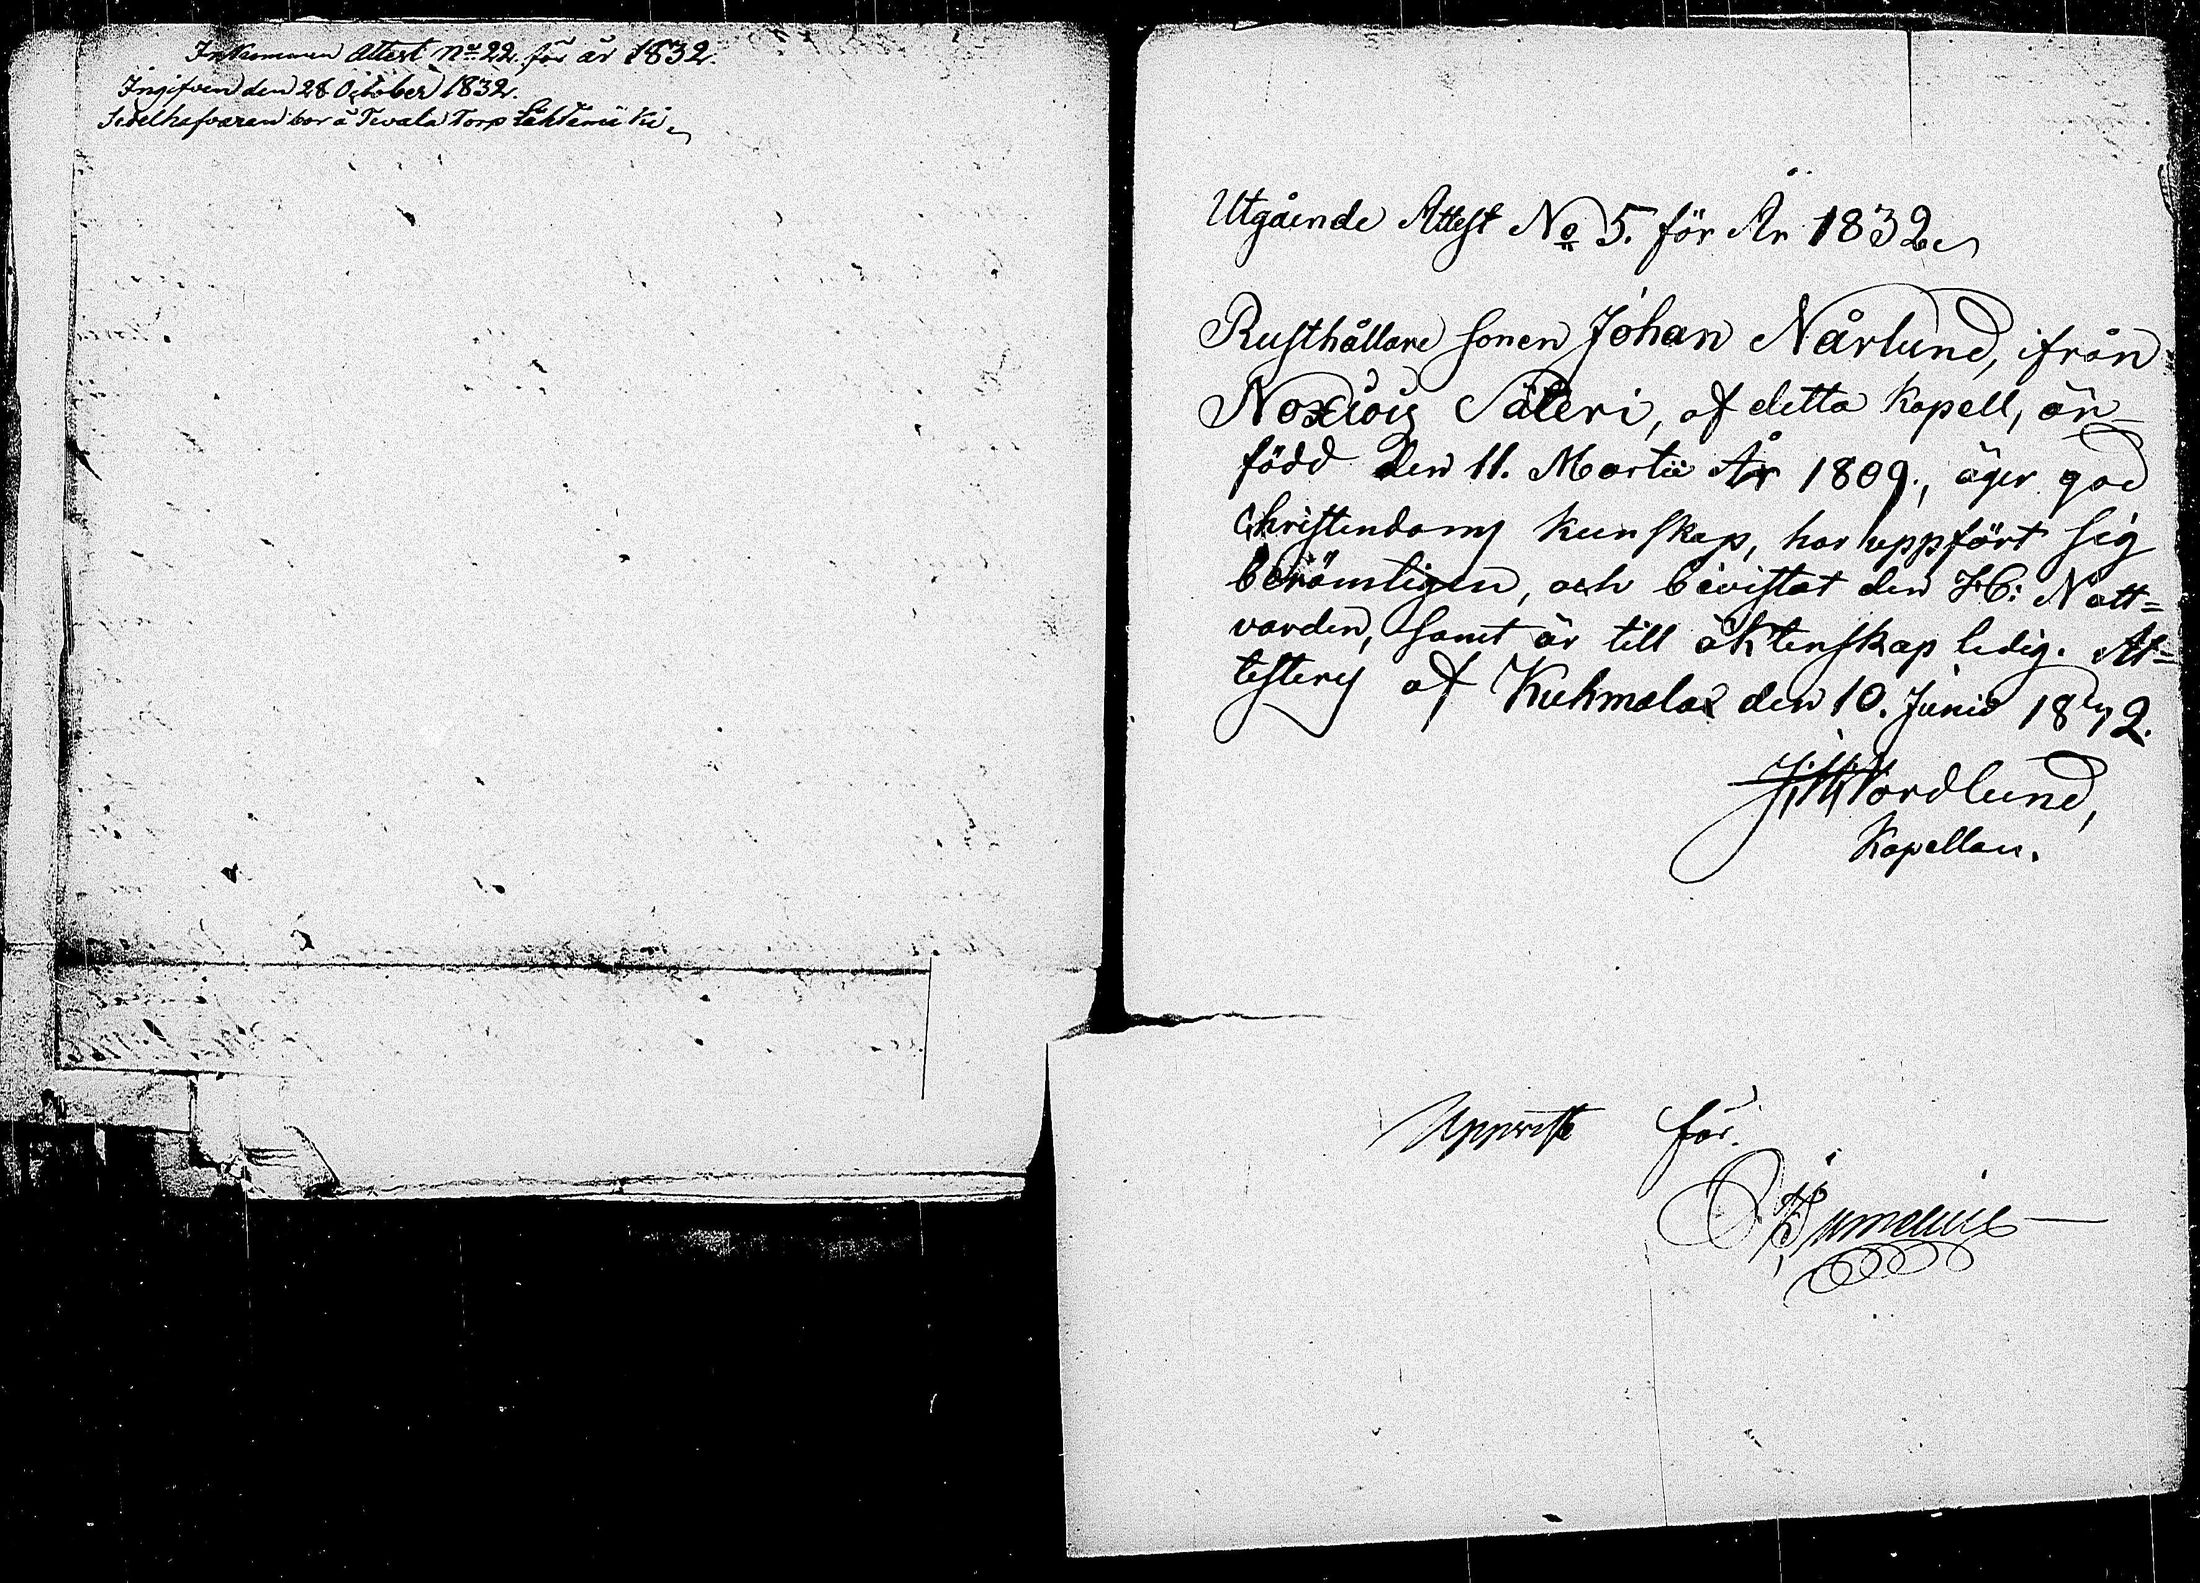 Inkommen Attest No 22. för år 1832.
Ingifven den 28 October 1832.
Sedelhafvaren bor å Tevala Torp Lahtemäki
Utgående Attest No 5. för År 1832
Rusthållare sonen Johan Nårlund, ifrån
Säteri, af detta Kapell, är
född den 11. Martii År 1809., äger god
Christendoms kunskap, har uppfört sig
berömligen, och bivistat den H: Natt=
varden, samt är till äktenskap ledig. At=
testeras af Kuhmalax den 10. Junii 1832.
Nordlund,
Kapellan.
Uppvist för.